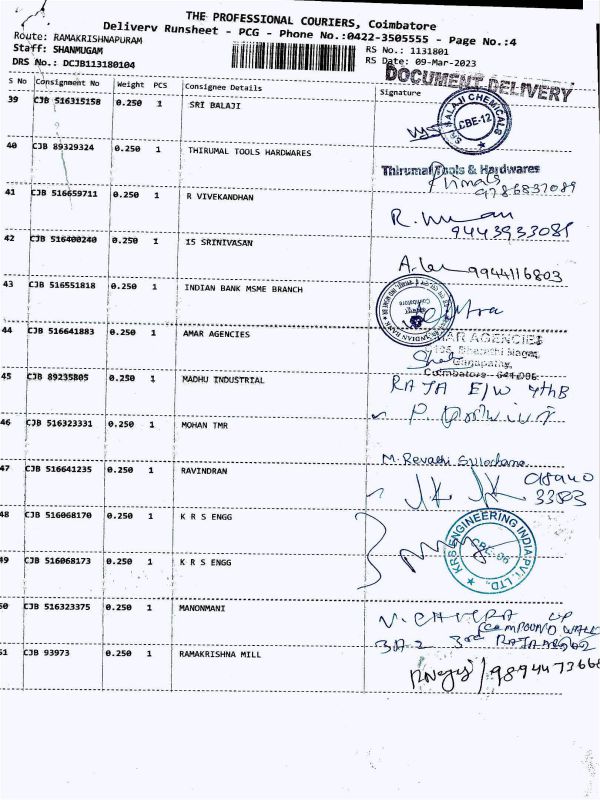 THE PROFESSIONAL COURIERS, Coimbatore
Delivery Runsheet - PCG - Phone No.:0422-3505555 - Page No.:4
Route: RAMAKRISHNAPURAM
RS No.: 1131801
Staff: SHANMUGAM
RS Date: 09-Mar-2023
DRS No.: DCJB113180104
DOCUMENT DELIVERY
S No Consignment No Weight PCS Consignee Details Signature
39 CJB 516315158 0.250 1 SRI BALAJI
SRI BALAJI CHEMICALS CBE-12
40 CJB 89329324 0.250 1 THIRUMAL TOOLS HARDWARES
Thirumal Tools & Hardwares
9786837089
41 CJB 516659711 0.250 1 R VIVEKANDHAN
9443933081
42 CJB 516400240 0.250 1 15 SRINIVASAN
9944116803
43 CJB 516551818 0.250 1 INDIAN BANK MSME BRANCH
44 CJB 516641883 0.250 1 AMAR AGENCIES
AMAR AGENCIES
Bharathi Nagar,
Ganapathy,
Coimbatore - 641 006
45 CJB 89235805 0.250 1 MADHU INDUSTRIAL
RAJA E/W 4thB
46 CJB 516323331 0.250 1 MOHAN TMR
M. Revathi
47 CJB 516641235 0.250 1 RAVINDRAN
48 CJB 516068170 0.250 1 K R S ENGG
KRS ENGINEERING INDIA PVT. LTD., CBE-06
49 CJB 516068173 0.250 1 K R S ENGG
50 CJB 516323375 0.250 1 MANONMANI
(COMPOUND WALL
3rd
51 CJB 93973 0.250 1 RAMAKRISHNA MILL